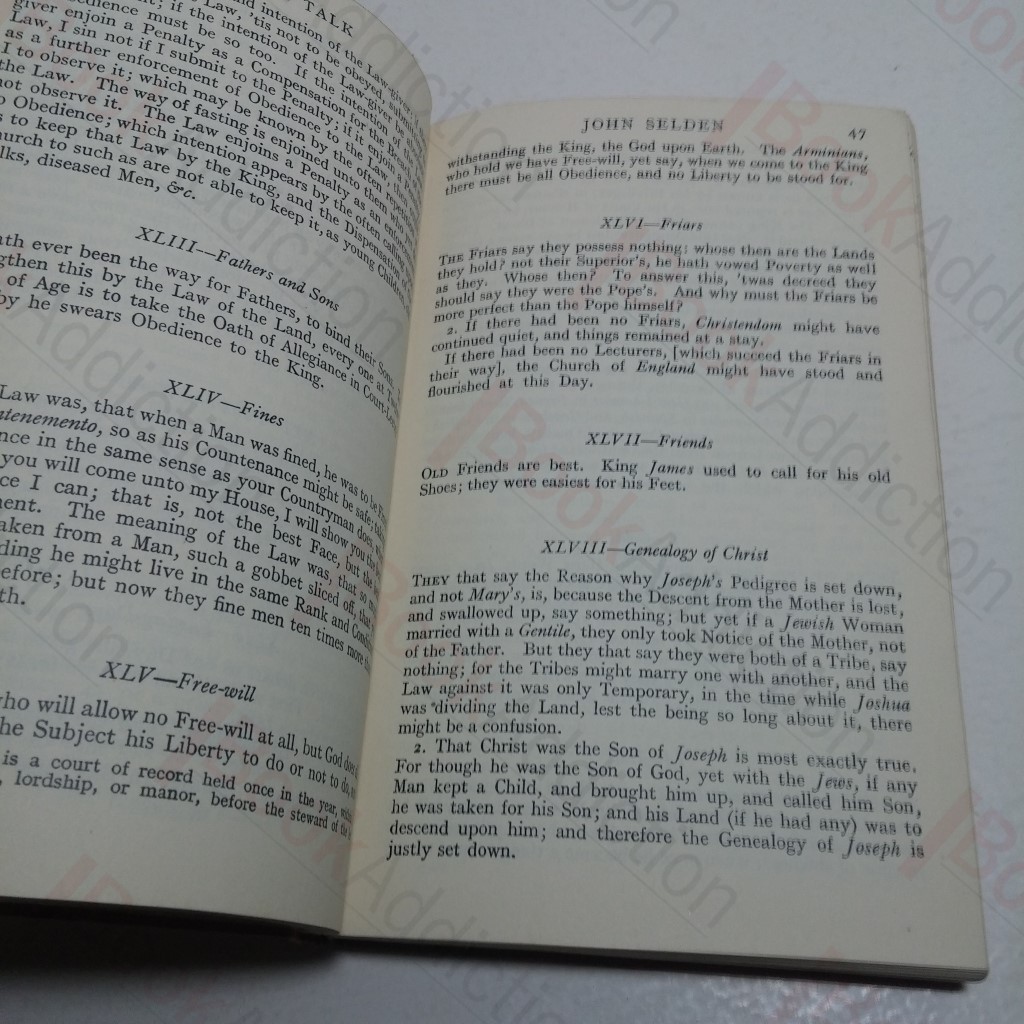 TALK
and intention of the Law-giver
Law, 'tis not to be obeyed, submit
ment; if the intention of the Law-giver be
bedience must be so too. If the intention
giver enjoin a Penalty as a Compensation for the Breach
Law, I sin not if I submit to the Penalty; if it enjoin a
as a further enforcement of Obedience to the
I to observe it; which may be known by the often
the Law. The way of fasting is enjoined unto them who
not observe it. The Law enjoins a Penalty as an
o Obedience; which intention appears by the often calling
s to keep that Law by the King, and the Dispensation of
hurch to such as are not able to keep it, as young Children,
lks, diseased Men, &c.
XLIII—Fathers and Sons
ath ever been the way for Fathers, to bind their Sons.
gthen this by the Law of the Land, every one at
of Age is to take the Oath of Allegiance in
by he swears Obedience to the King.
XLIV—Fines
Law was, that when a Man was fined, he was to be
ntenemento, so as his Countenance might be safe;
nce in the same sense as your Countryman does,
you will come unto my House, I will show you the
ce I can; that is, not the best Face, but the
ment. The meaning of the Law was, that so
aken from a Man, such a gobbet sliced off, that
ding he might live in the same Rank and
efore; but now they fine men ten times more
th.
XLV—Free-will
who will allow no Free-will at all, but God
he Subject his Liberty to do or not to do,
is a court of record held once in the year,
, lordship, or manor, before the steward of the
JOHN SELDEN 47
withstanding the King, the God upon Earth. The Arminians,
who hold we have Free-will, yet say, when we come to the King
there must be all Obedience, and no Liberty to be stood for.
XLVI—Friars
THE Friars say they possess nothing; whose then are the Lands
they hold? not their Superior's, he hath vowed Poverty as well
as they. Whose then? To answer this, 'twas decreed they
should say they were the Pope's. And why must the Friars be
more perfect than the Pope himself?
2. If there had been no Friars, Christendom might have
continued quiet, and things remained at a stay.
If there had been no Lecturers, [which succeed the Friars in
their way], the Church of England might have stood and
flourished at this Day.
XLVII—Friends
OLD Friends are best. King James used to call for his old
Shoes; they were easiest for his Feet.
XLVIII—Genealogy of Christ
THEY that say the Reason why Joseph's Pedigree is set down,
and not Mary's, is, because the Descent from the Mother is lost,
and swallowed up, say something; but yet if a Jewish Woman
married with a Gentile, they only took Notice of the Mother, not
of the Father. But they that say they were both of a Tribe, say
nothing; for the Tribes might marry one with another, and the
Law against it was only Temporary, in the time while Joshua
was dividing the Land, lest the being so long about it, there
might be a confusion.
2. That Christ was the Son of Joseph is most exactly true.
For though he was the Son of God, yet with the Jews, if any
Man kept a Child, and brought him up, and called him Son,
he was taken for his Son; and his Land (if he had any) was to
descend upon him; and therefore the Genealogy of Joseph is
justly set down.
BookAddiction